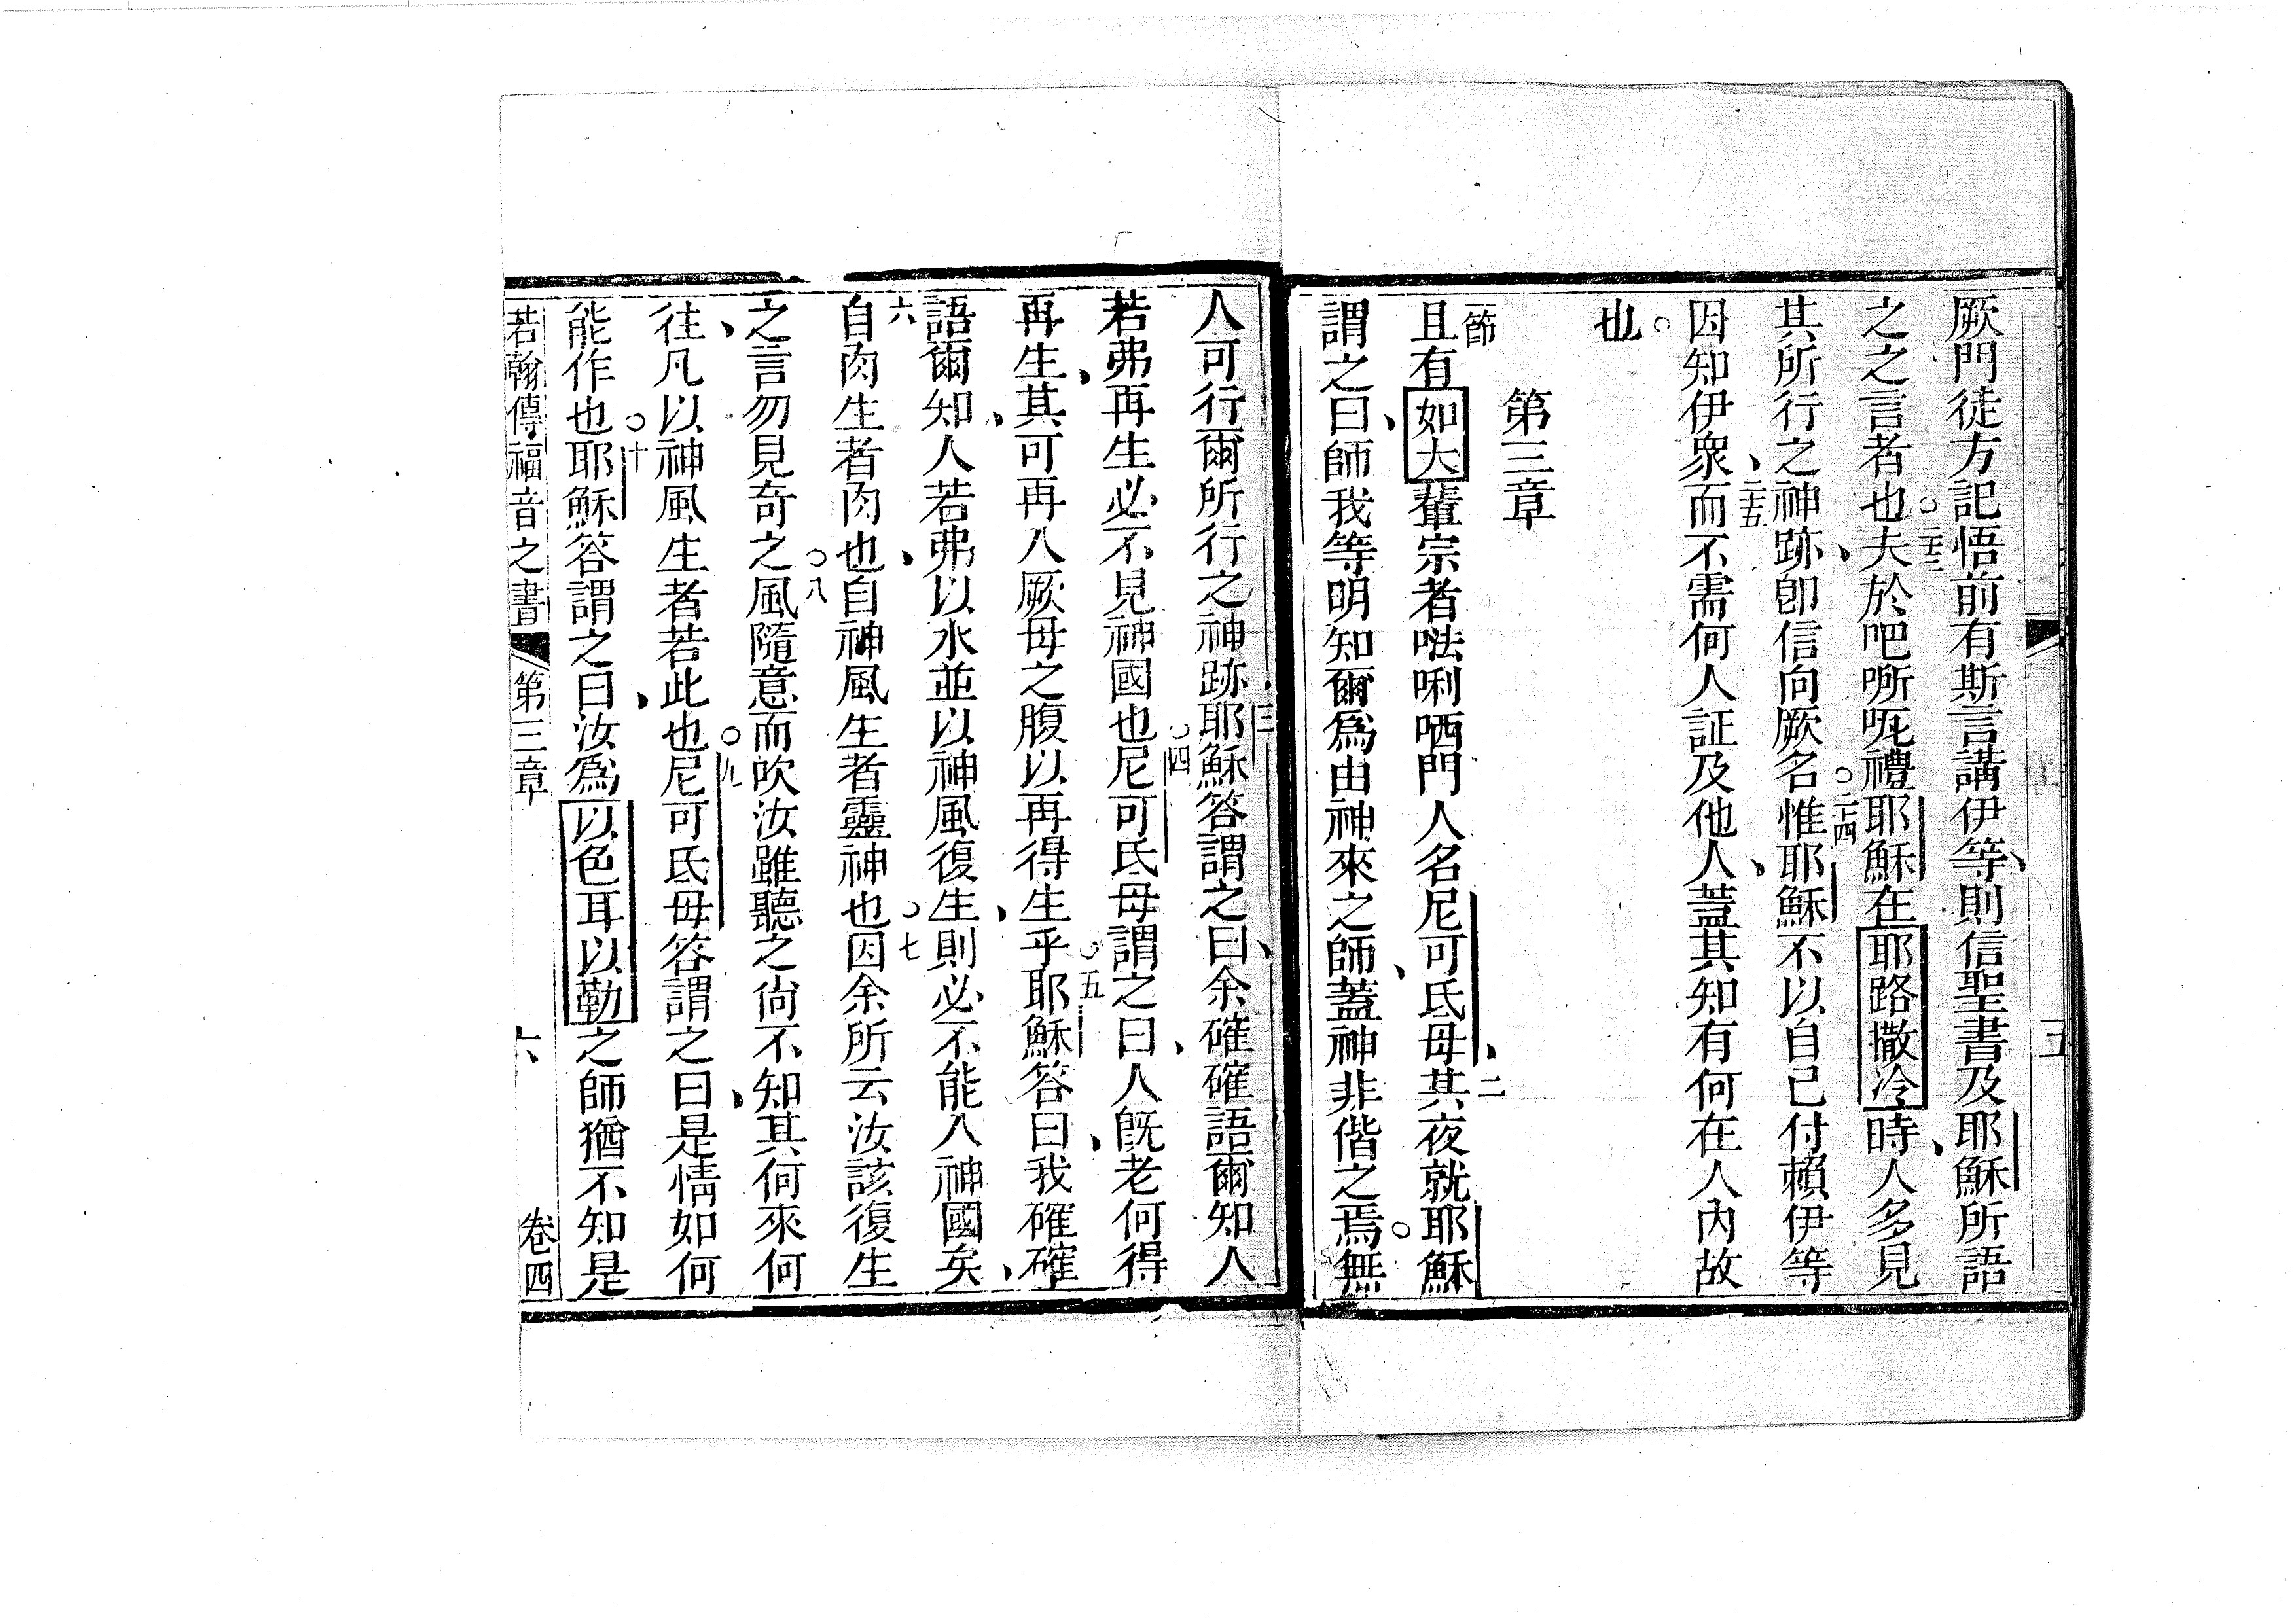 五
厥門徒方記悟前有斯言講伊等、則信聖書及耶穌所語
之之言者也。二十三夫於吧㖔呢禮耶穌在耶路撒冷時、人多見
其所行之神跡、卽信向厥名。二十四惟耶穌不以自己付賴伊等
因知伊眾、二十五而不需何人証及他人、蓋其知有何在人內故
也。
第三章
一節且有如大輩宗者㗏唎哂門人名尼可氐母、二其夜就耶穌
謂之曰、師我等明知爾爲由神來之師、蓋神非偕之焉。無
人可行爾所行之神跡、三耶穌答謂之曰、余確確語爾知人
若弗再生必不見神國也。四尼可氐母謂之曰、人旣老何得
再生、其可再入厥母之腹以再得生乎。五耶穌答曰、我確確
語爾知、人若弗以水並以神風復生、則必不能入神國矣、
六自肉生者肉也、自神風生者靈神也。七因余所云汝該復生
之言勿見奇之。八風隨意而吹汝雖聽之尙不知其何來何
往、凡以神風生者若此也。九尼可氐母答謂之曰、是情如何
能作也。十耶穌答謂之曰、汝爲以色耳以勒之師猶不知是
若翰傳福音之書 第三章 六 卷四